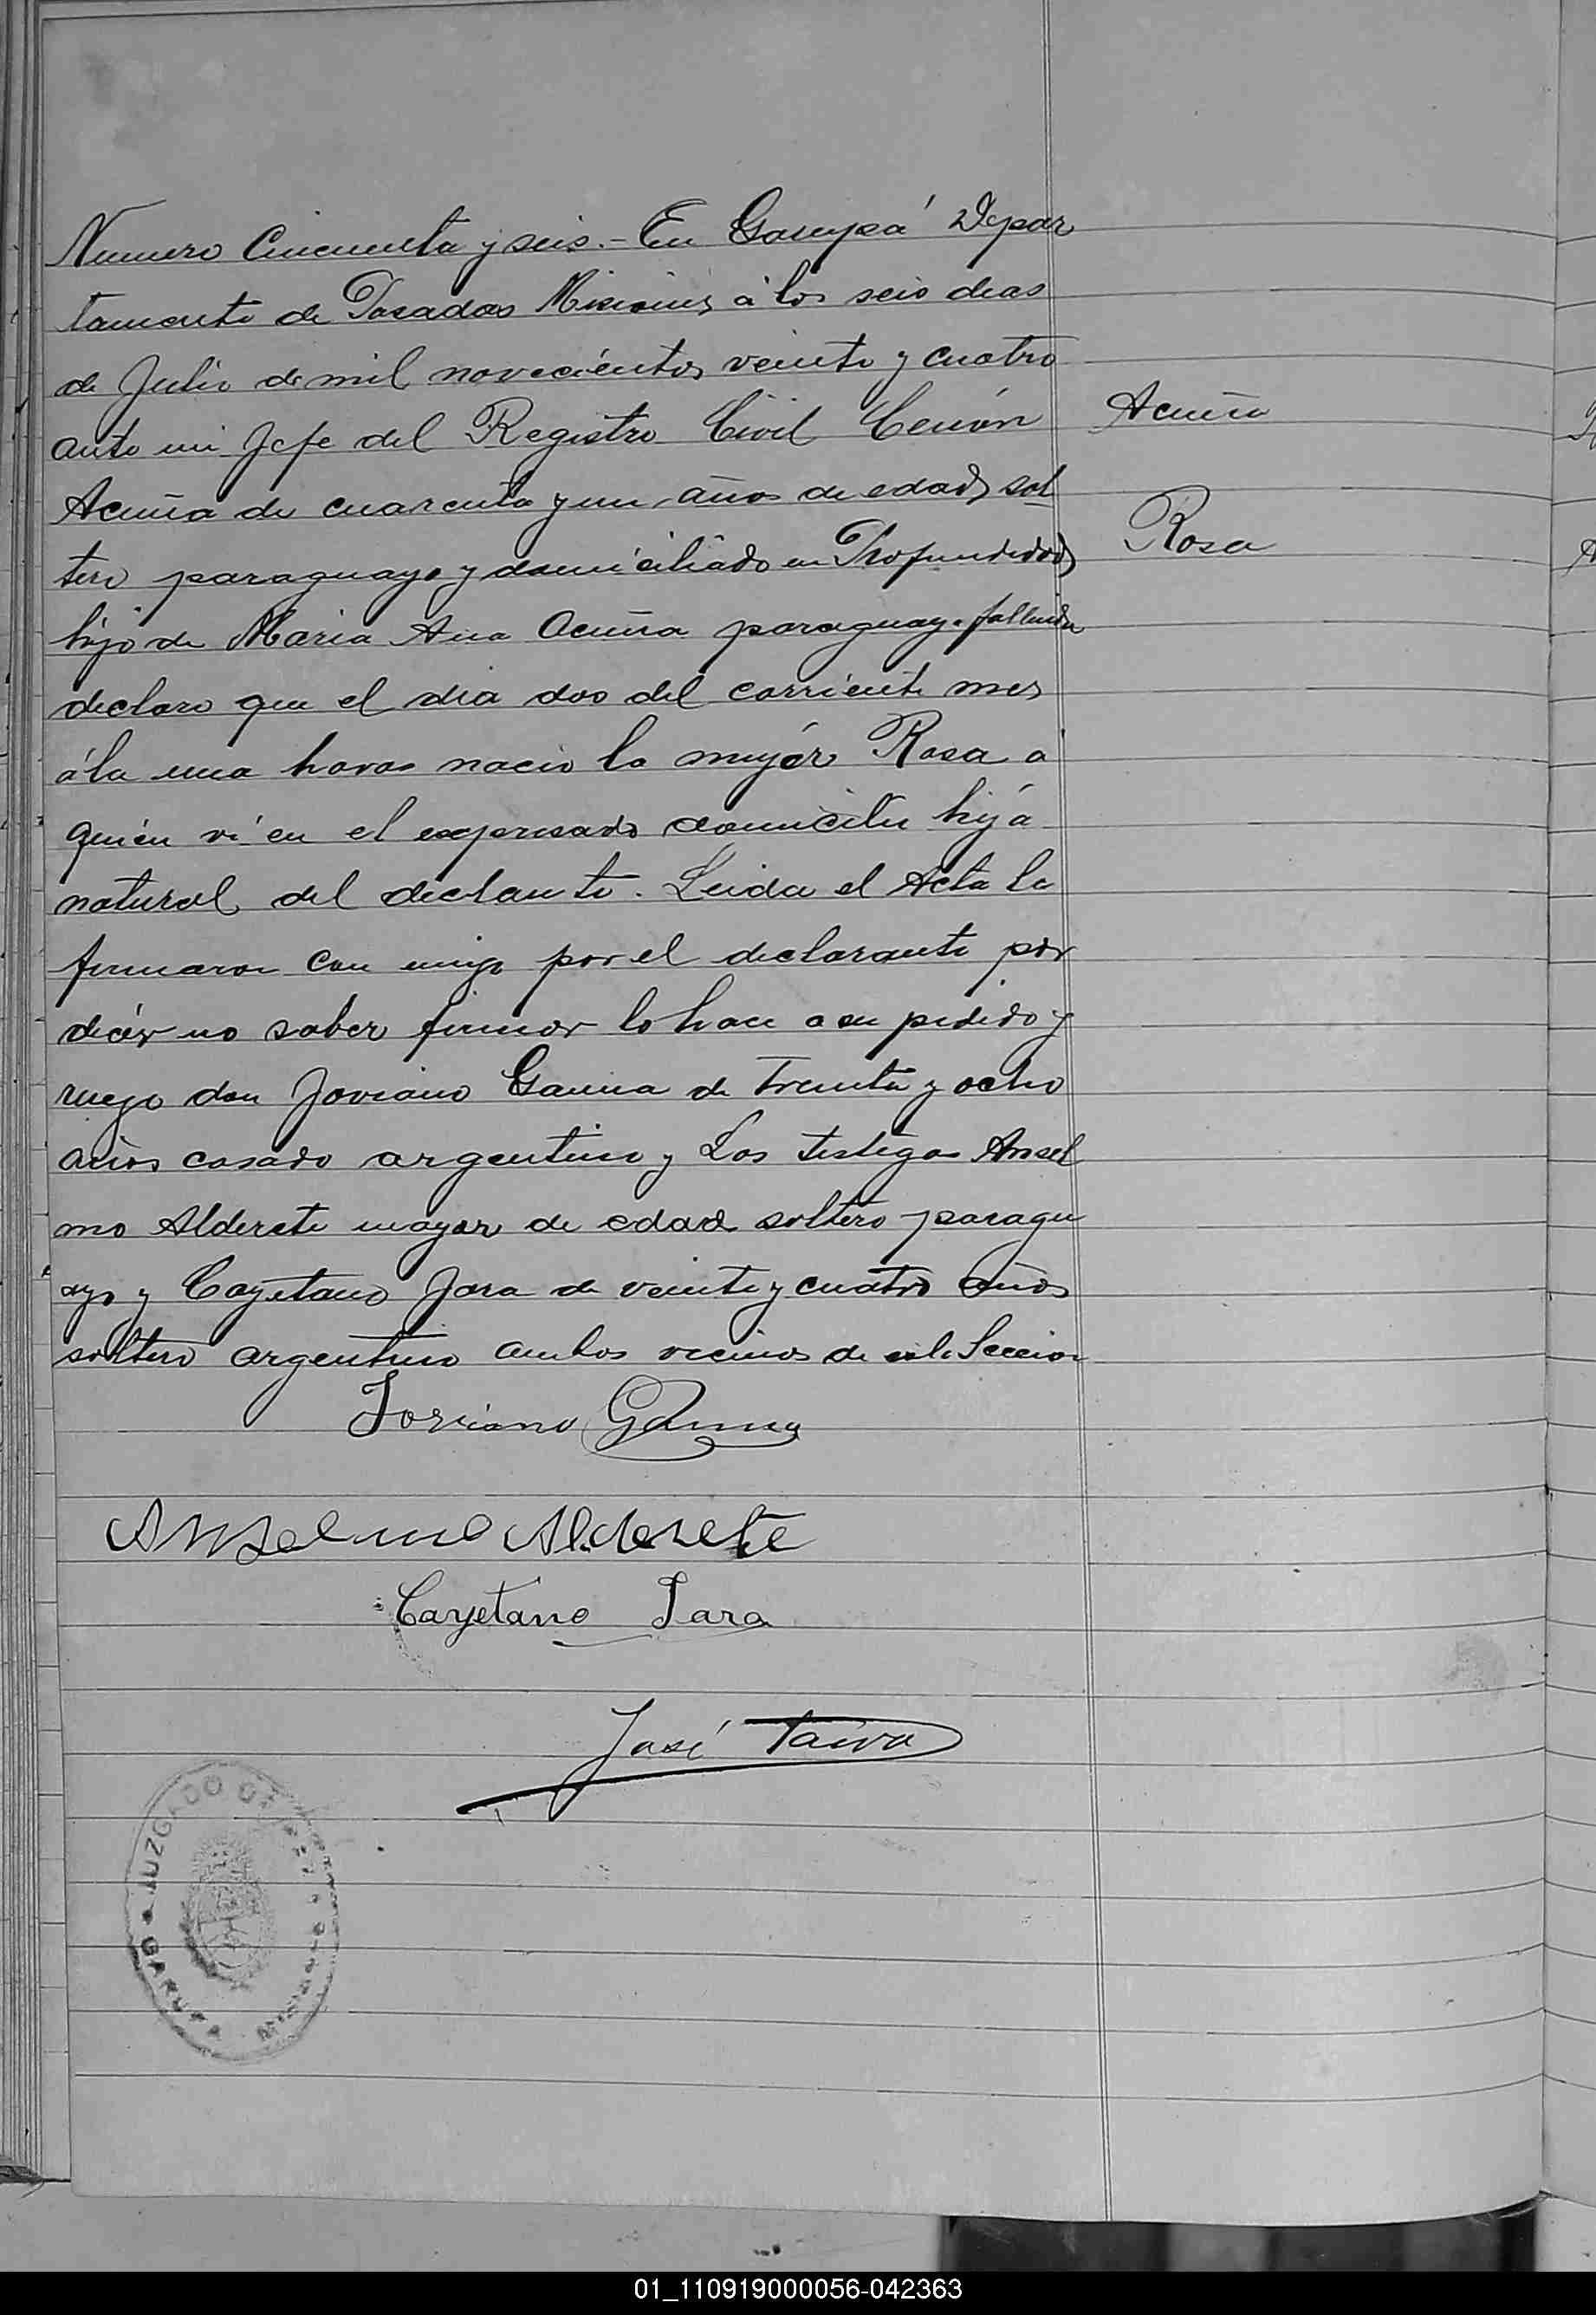 Numero Cincuenta y seis.- En Garupá Depar
tamento de Posadas Misiones á los seis dias
de Julio de mil novecientos veinte y cuatro
ante mi Jefe del Registro Civil Cenón
Acuña
Acuña de cuarenta y un años de edad, sol
Rosa
tero paraguayo y domiciliado en Profundidad
hijo de Maria Ana Acuña paraguaya fallecida
declaro que el dia dos del corriente mes
á la una horas nacio la mujér Rosa a
quien ví en el expresado domicilio hija
natural del declante. Leida el Acta la
firmaron con migo por el declarante por
decir no saber firmar lo hace a su pedido y
ruego don Joviano Gauna de Treinta y ocho
años casado argentino y Los testigos Ansel
mo Alderete mayor de edad soltero paragu
ayo y Cayetano Jara de veinte y cuatro años
soltero argentino ambos vecinos de esta Seccion
Joviano Gauna
Anselmo Alderete
Cayetano Jara
José Paiva
JUZGADO DE PAZ
GARUPA
MISIONES
01_110919000056-042363